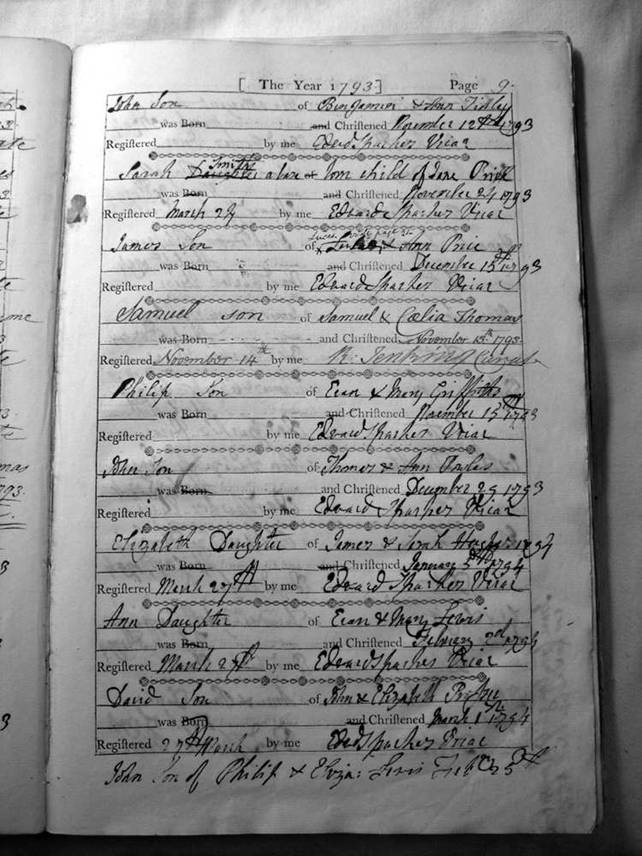 [ The Year 1793 ] Page 9.
John Son of Benjamin & Ann
was Born and Chriſtened November 12th 1793
Regiſtered by me Edwd Sparkes Vicar
Sarah Daughter Smith a base or born child of Jane Price
was Born and Chriſtened November 24 1793
Regiſtered March 24 by me Edward Sparkes Vicar
James Son of & Ann Price
was Born and Chriſtened December 15th 1793
Regiſtered by me Edward Sparkes Vicar
Samuel son of Samuel & Cœlia Thomas
was Born and Chriſtened November 1793
Regiſtered November 14th by me R: Jenkins Curate
Philip Son of Evan & Mary Griffiths
was Born and Chriſtened November 15th 1793
Regiſtered by me Edward Sparkes Vicar
John Son of Thomas & Ann Powles
was Born and Chriſtened December 29 1793
Regiſtered by me Edward Sparkes Vicar
Elizabeth Daughter of James & Sarah 1794
was Born and Chriſtened January 5th 1794
Regiſtered March 27th by me Edward Sparkes Vicar
Ann Daughter of Evan & Mary Lewis
was Born and Chriſtened February 2d 1794
Regiſtered March 27th by me Edward Sparkes Vicar
David Son of John & Elizabeth
was Born and Chriſtened March 1st 1794
Regiſtered 27th March by me Edwd Sparkes Vicar
John Son of Philip & Eliza: Lewis Feb 25th